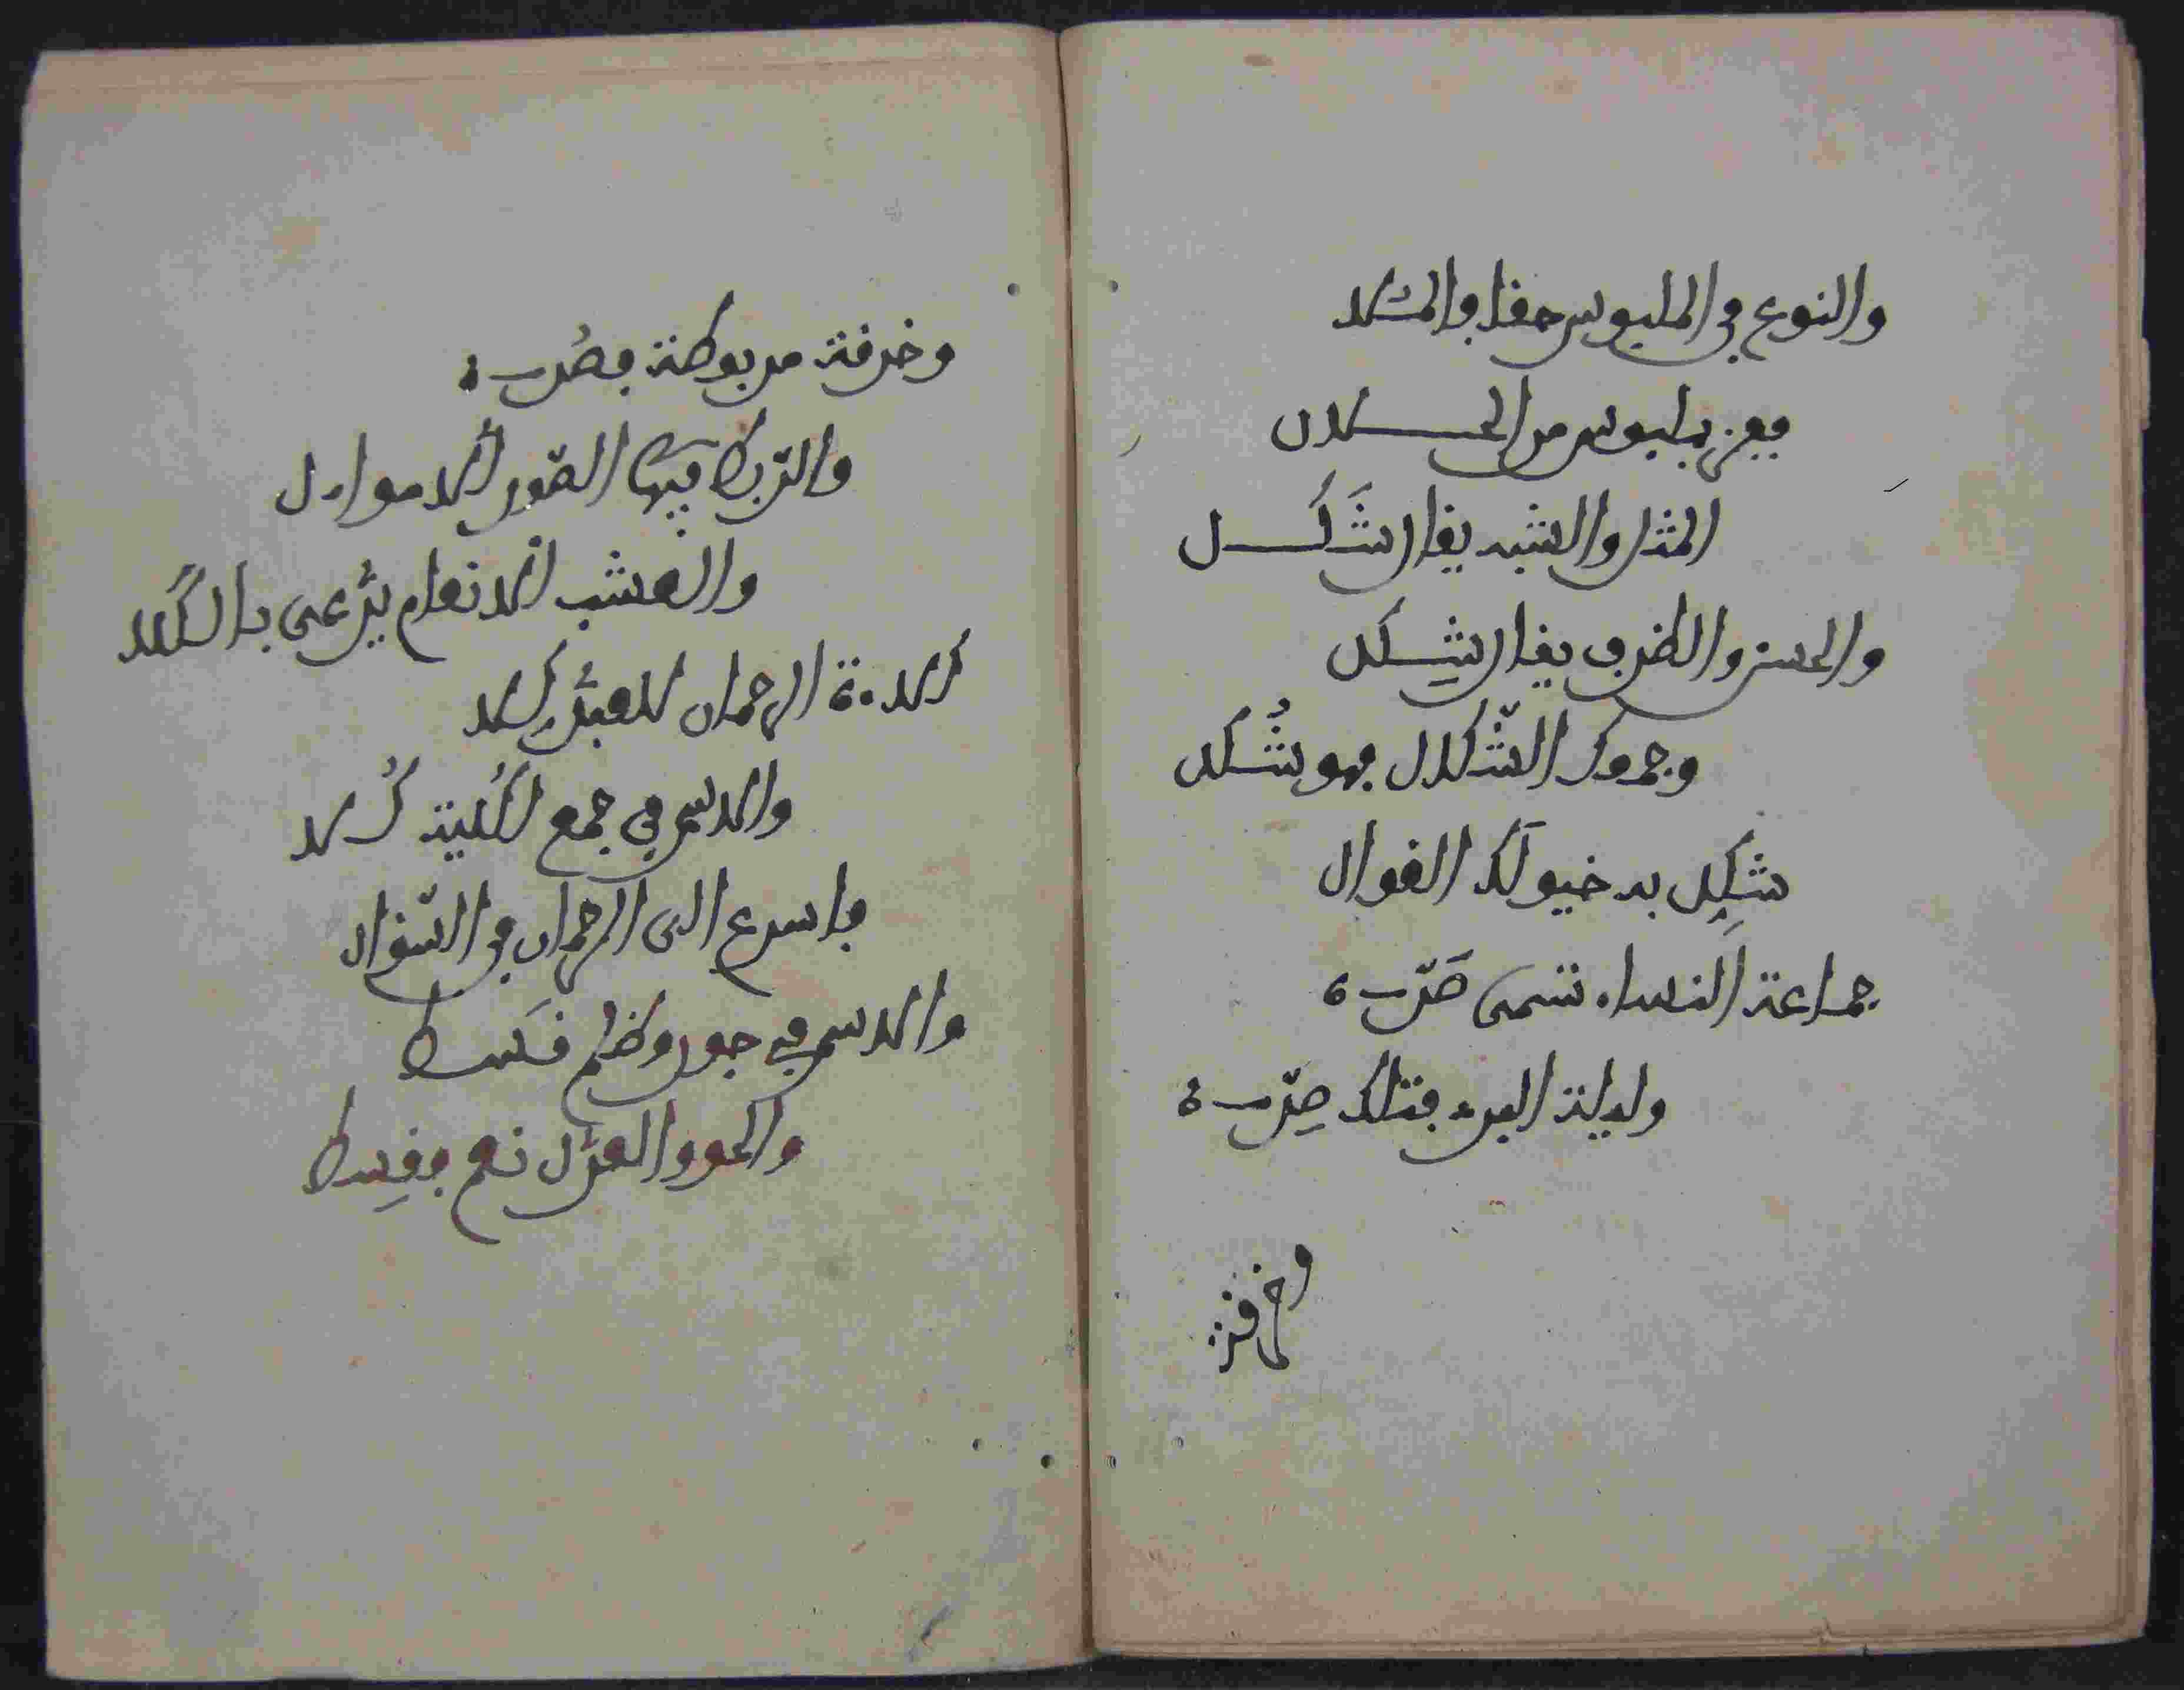 والنوع في الملبوس حقا والملا
فعز بلبوس من الحلال
المثل والشبه يقال شَكل
والحسن والظرف يقال شِكل
وجمعك الشّكال فهو شُكل
شكِل به خيولك الغوال
جماعة النساء تسمى صَرّة
وليلة البرد فتلك صِرّة
وخرقة
وخرقة مربوطة فصُرة
والترك فيها الصّور الاموال
والعشب للانعام يرعى بالكَلا
كلاءة الرحمان للعبد كِلا
والاسم في جمع لكُلية كُلا
فاسرع الى الرحمان في السّؤال
والاسم في جور وظلم قَسط
والحق والعدل نعم فقِسط